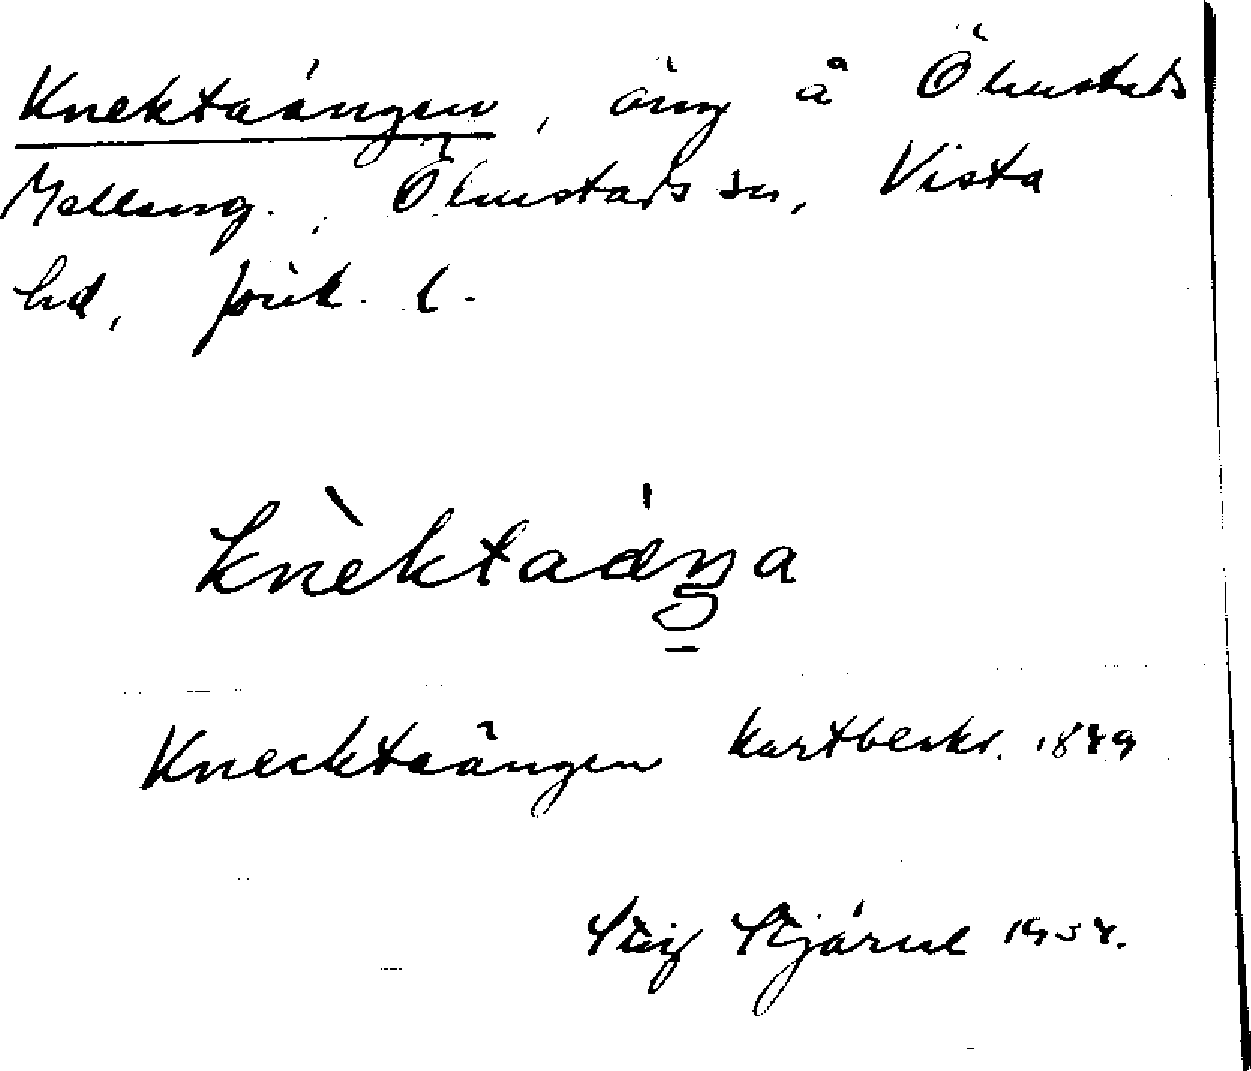 Knektaängen, äng å Ölmstads
Mellang., Ölmstads sn, Vista
hd, Jönk. l.
knèktaäŋa
Knecktaängen kartbeskr. 1849
Stig